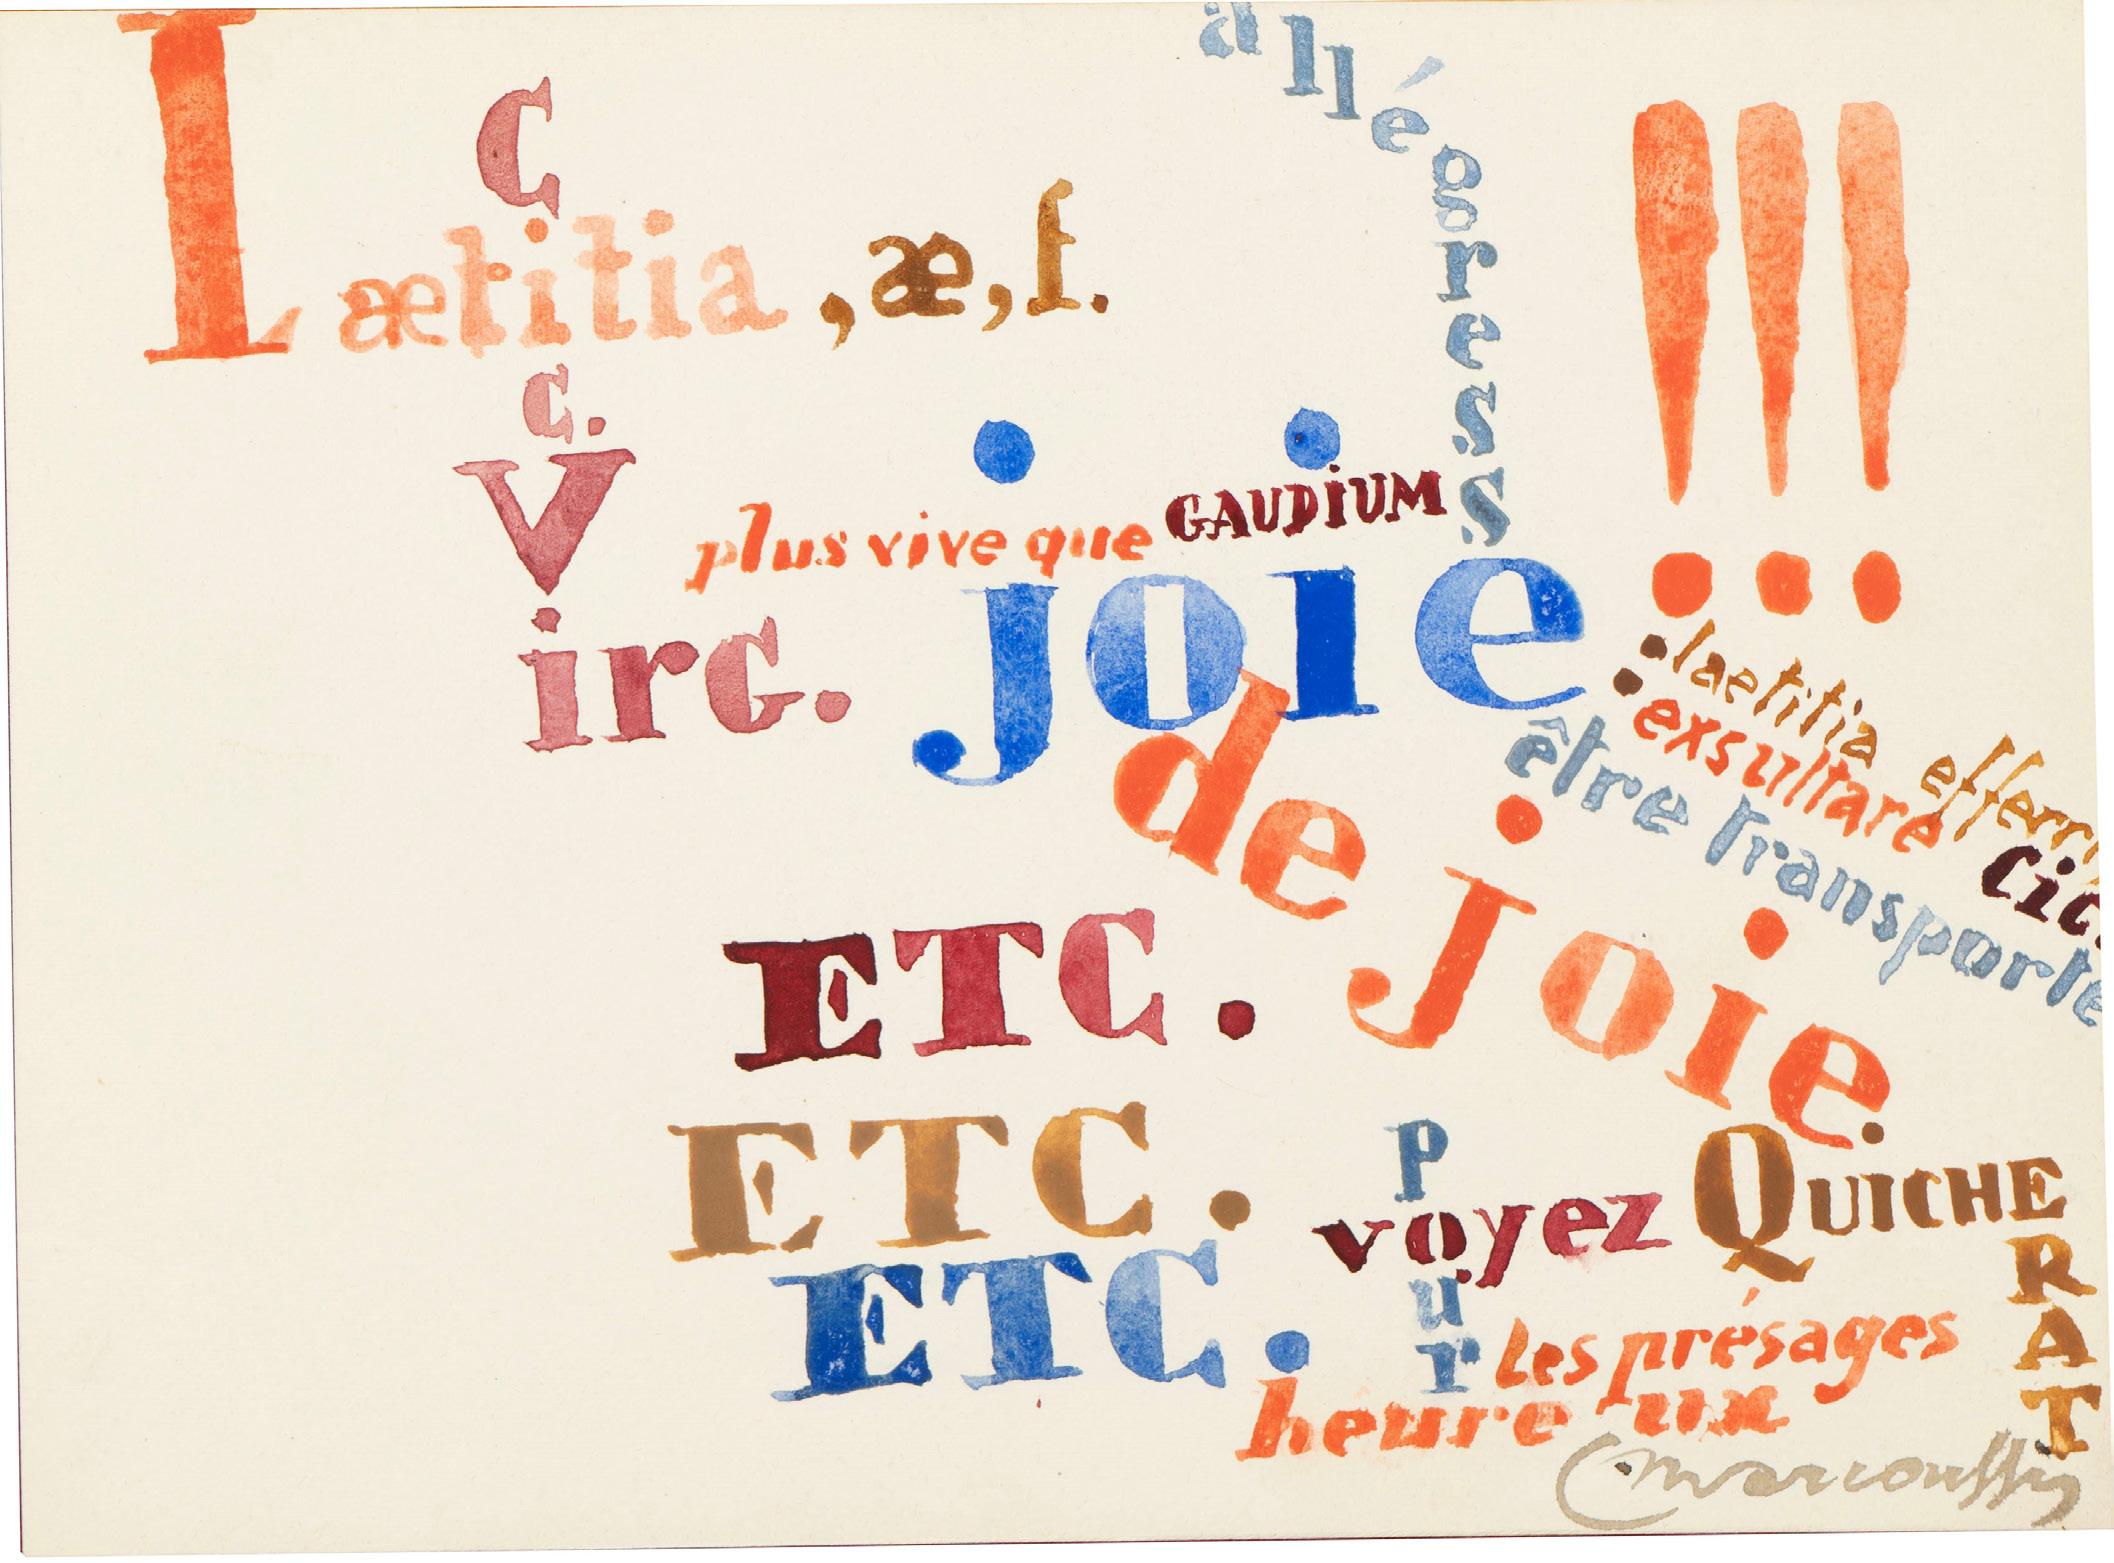 Lætitia, æ, f.
C
i
c.
Virg.
allégresse
!!!
plus vive que GAUDIUM
joie
: lætitia efferri
exsultare
Cic.
être transporté
de joie.
ETC.
ETC.
ETC.
pour
voyez QUICHERAT
les présages
heureux
Marcoussis